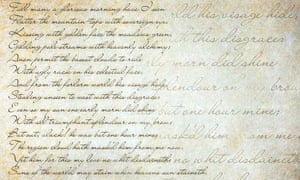 Full many a glorious morning have I seen
Flatter the mountain-tops with sovereign eye,
Kissing with golden face the meadows green,
Gilding pale streams with heavenly alchemy;
Anon permit the basest clouds to ride
With ugly rack on his celestial face,
And from the forlorn world his visage hide,
Stealing unseen to west with this disgrace:
Even so my sun one early morn did shine
With all triumphant splendor on my brow;
But out, alack! he was but one hour mine;
The region cloud hath mask'd him from me now.
Yet him for this my love no whit disdaineth;
Suns of the world may stain when heavens sun staineth
his visage hide
this disgrace
morn did shine
on my brow
one hour mine;
him from me
no whit disdaineth